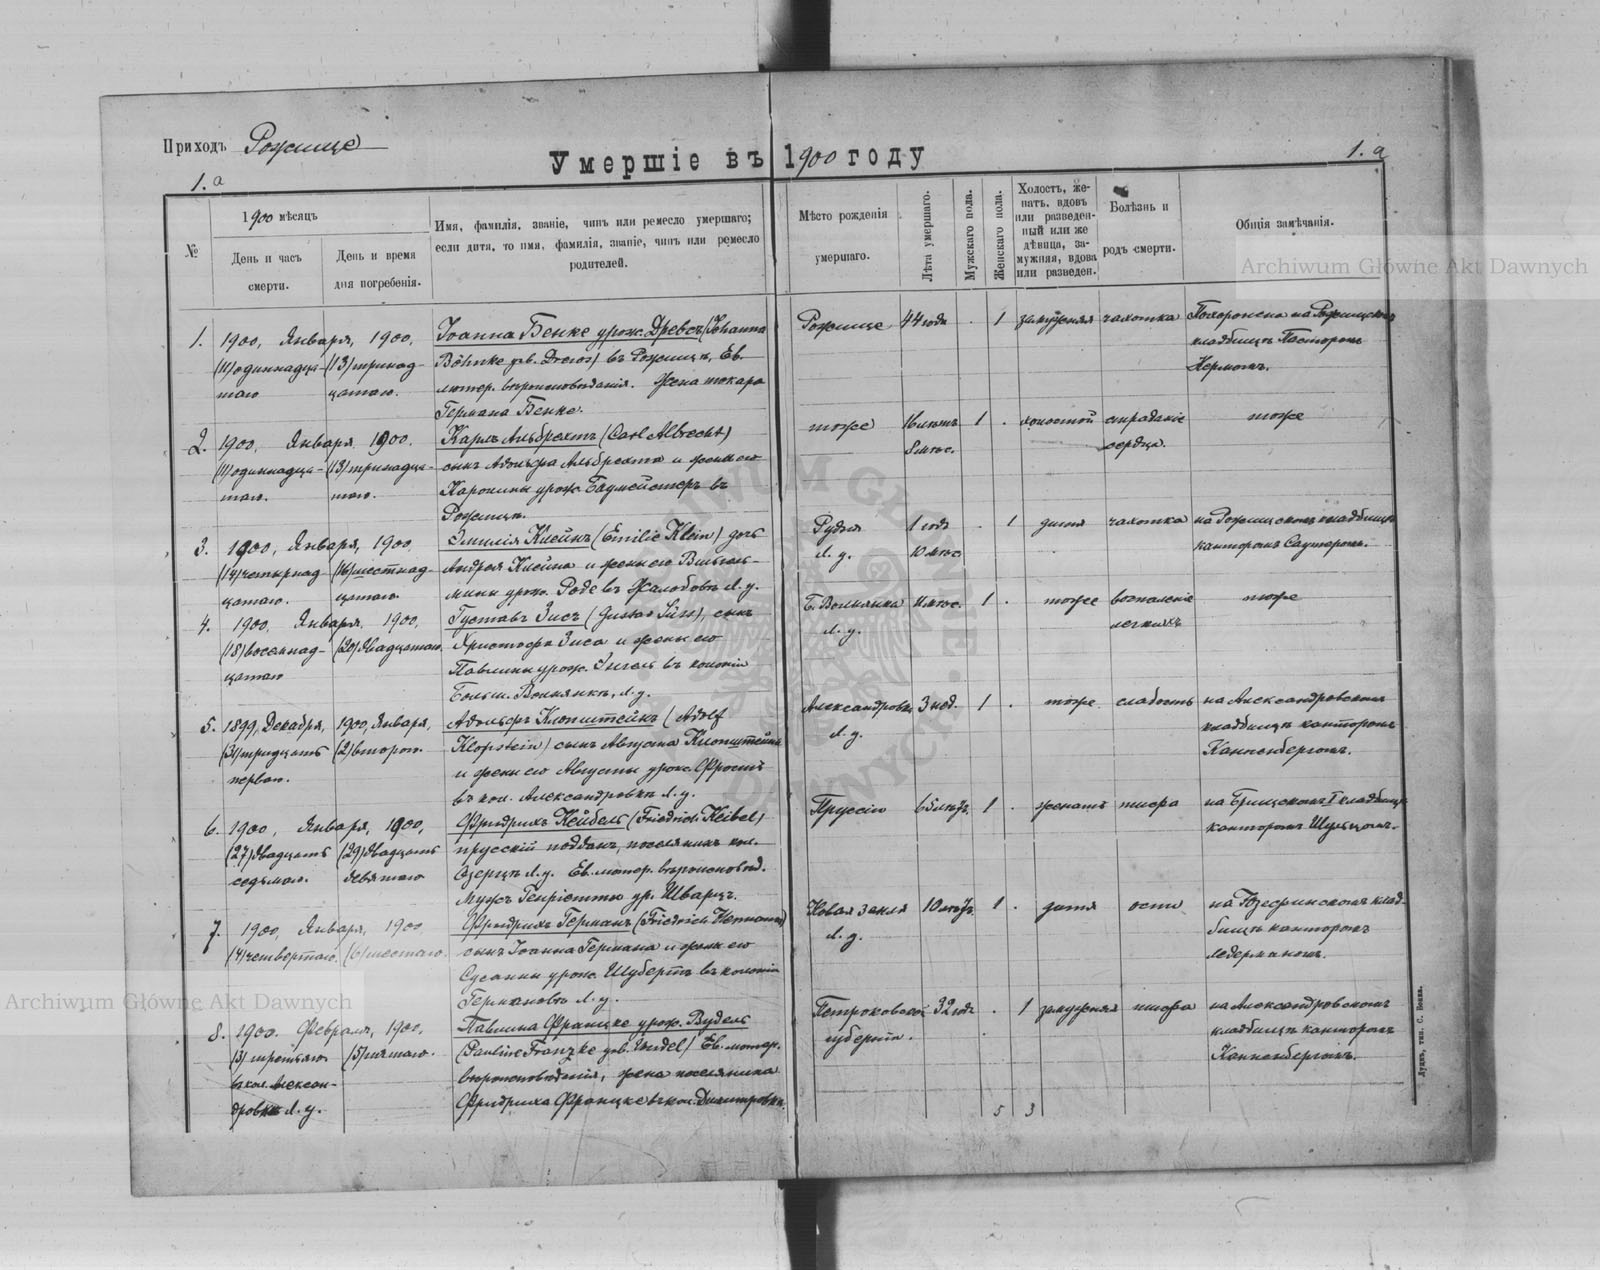 Приходъ Рожище
Умершіе въ 1900 году
1.a
1.a
№
1900 мѣсяцъ
День и часъ
смерти.
День и время
дня погребенія.
Имя, фамилія, званіе, чинъ или ремесло умершаго;
если дитя, то имя, фамилія, званіе, чинъ или ремесло
родителей.
Мѣсто рожденія
умершаго.
Лѣта умершаго.
Мужскаго пола.
Женскаго пола.
Холостъ, же-
натъ, вдовъ
или разведен-
ный или же
дѣвица, за-
мужняя, вдова
или разведен.
Болѣзнь и
родъ смерти.
Общія замѣчанія.
1.
1900, Января,
(11) одиннадца-
таго
1900,
(13) тринад-
цатаго.
Іоанна Бенке урож. Древсъ (Johanna
Böhnke geb. Drews) въ Рожищѣ, Ев.
лютер. вѣроисповѣданія. Жена токаря
Германа Бенке.
Рожище
44 года
1
замужняя
чахотка
Похоронена на Рожищскомъ
кладбищѣ Пасторомъ
2.
1900, Января
(11) одиннадца-
таго.
1900.
(13) тринадца-
таго.
Карлъ Альбрехтъ (Carl Albrecht)
сынъ Адольфа Альбрехта и жены его
Каролины урож. Баумейстеръ въ
Рожищѣ.
тоже
16 лѣтъ
8 мѣс.
1
холостой
страданіе
сердца.
тоже
3.
1900, Января,
(14) четырнад-
цатаго.
1900,
(16) шестнад-
цатаго
Эмилія Клейнъ (Emilie Klein) дочь
Андрея Клейна и жены его Вильгель-
мины урож. Роде въ Жалобовъ Л. у.
Рудня
Л. у.
1 годъ
10 мѣс
1
дитя
чахотка
на Рожищскомъ кладбищѣ
канторомъ Саутеромъ.
4.
1900, Января,
(18) восемнад-
цатаго
1900,
(20) двадцатаго.
Густавъ Зисъ (Gustav Süss), сынъ
Христофа Зиса и жены его
Павлины урож. Энгель въ колоніи
Больш. Волнянкѣ, Л. у.
Б. Волнянка
Л. у.
1
тоже
воспаленіе
легкихъ
тоже
5.
1899, Декабря,
(31) тридцать
перваго.
1900, Января,
(2) второго.
Адольфъ Клопштейнъ (Adolf
Klopstein) сынъ Августа Клопштейна
и жены его Августы урож. Фростъ
въ кол. Александровкѣ Л. у.
Александровка
Л. у.
3 нед.
1
тоже
слабость
на Александровскомъ
кладбищѣ канторомъ
Канненбергомъ.
6.
1900, Января,
(27) двадцать
седьмаго.
1900,
(29) двадцать
девятаго
Фридрихъ Кейбель (Friedrich Keibel)
прусскій поддан., поселянинъ кол.
Озерцѣ Л. у. Ев. лютер. вѣроисповѣд.
Мужъ Генріетты ур. Шварцъ.
Пруссію
65 лѣтъ.
1
женатъ
тифа
на Брищскомъ I кладбищѣ
канторомъ Шульцомъ.
7.
1900, Января,
(4) четвертаго.
1900
(6) шестаго.
Фридрихъ Германъ (Friedrich Hermann)
сынъ Іоанна Германа и жены его
Сусанны урож. Шубертъ въ колоніи
Германовкѣ Л. у.
Новая земля
Л. у.
1
дитя
оспы
на Юзефинскомъ клад-
бищѣ канторомъ
Ледерманомъ.
8.
1900. Февраля,
(3) третьяго
въ кол. Алексан-
дровкѣ Л. у.
1900,
(5) пятаго.
Павлина Францке урож. Вудель
(Pauline Franzke geb. Wudel) Ев. лютер.
вѣроисповѣданія, жена поселянина
Фридриха Францке въ кол. Димитровкѣ.
Петроковской
губерніи.
32 год.
1
замужняя
тифа
на Александровскомъ
кладбищѣ канторомъ
Канненбергомъ.
5
3
Луцкъ, тип. С. Бонка.
Archiwum Główne Akt Dawnych
Archiwum Główne Akt Dawnych